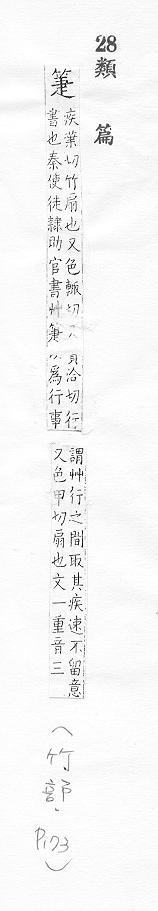 28類 篇
箑
疾葉切竹扇也又色輒切又實洽切行
書也秦使徒隸助官書艸箑以為行事
謂艸行之間取其疾速不留意
又色甲切扇也文一重音三
(竹部、P.173)